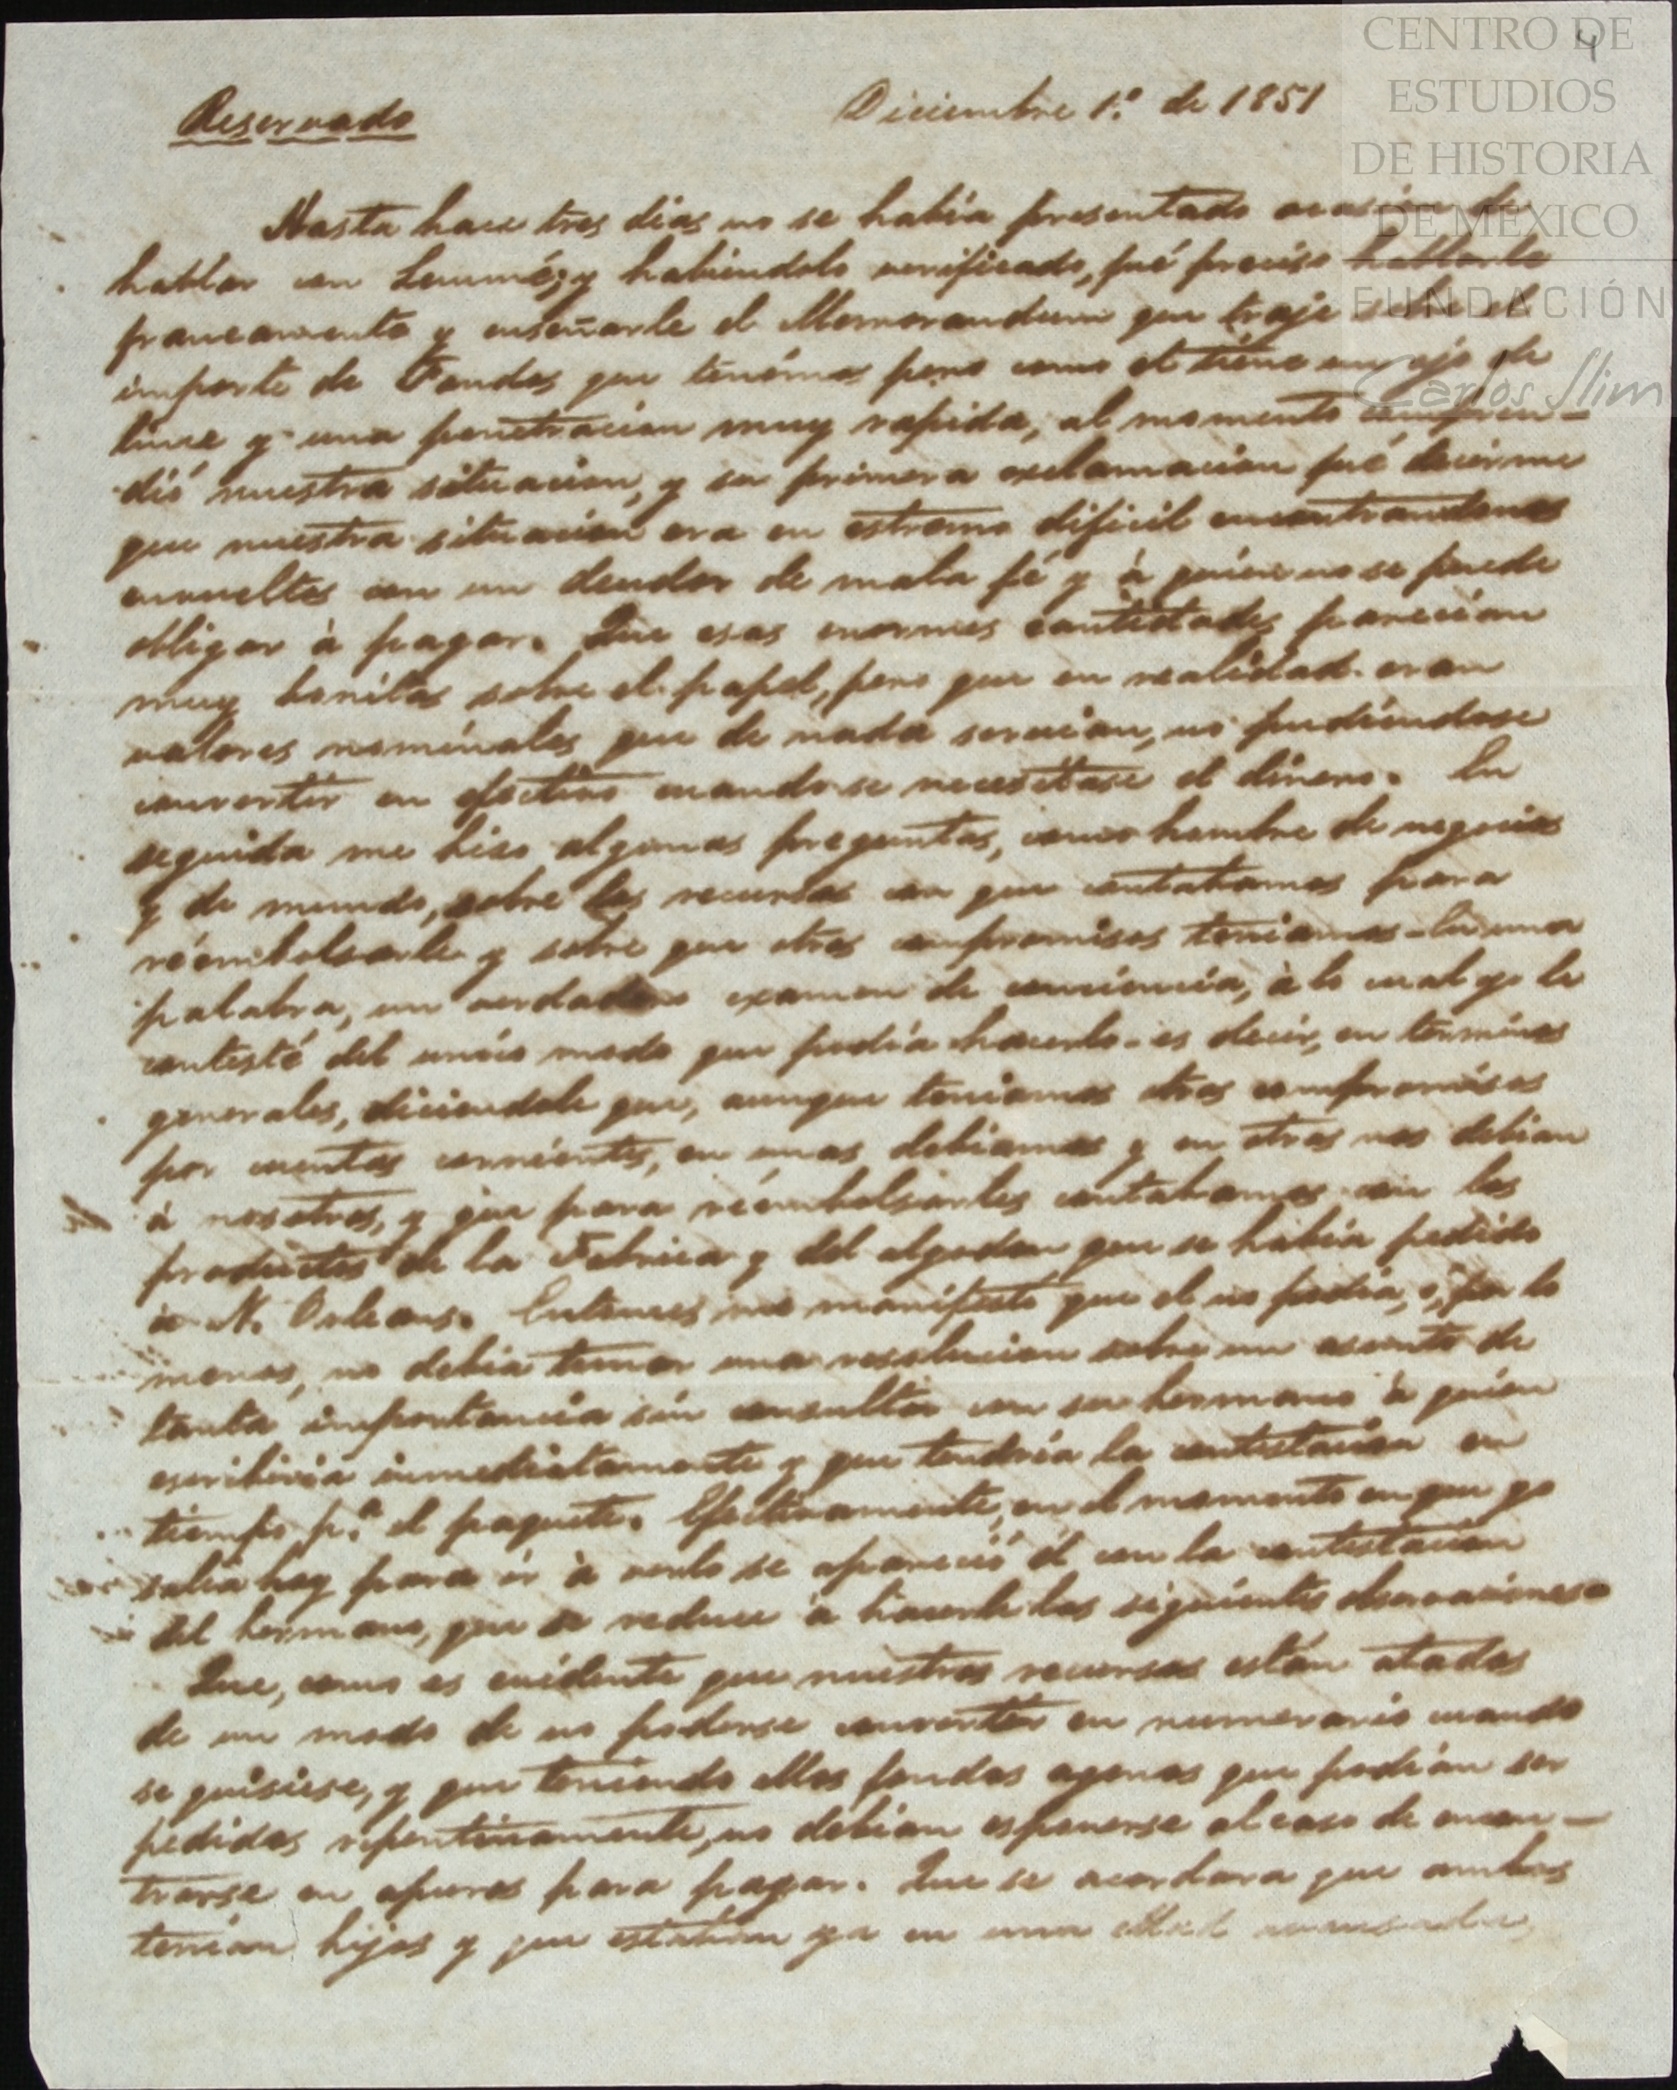 4
CENTRO DE
ESTUDIOS
DE HISTORIA
DE MÉXICO
FUNDACIÓN
Carlos Slim
Reservado
Diciembre 1.º de 1851
Hasta hace tres dias no se habia presentado ocasión de
hablar con Lemmé; y habiendolo verificado, fué preciso hablarle
francamente y enseñarle el Memorandum que traje sobre el
importe de Fondos que tenémos pero como el tiene un ojo de
lince y una penetracion muy rapida, al momento compren-
dió nuestra situacion, y su primera exclamacion fué decirme
que nuestra situacion era en estremo dificil encontrandonos
envueltos con un deudor de mala fé y à quien no se puede
obligar à pagar. Que esas enormes cantidades parecian
muy bonitas sobre el papel, pero que en realidad eran
valores nominales que de nada servian, no pudiendose
convertir en efectivo cuando se necesitase el dinero. En
seguida me hizo algunas preguntas, como hombre de negocios
y de mundo, sobre los recursos con que contabamos para
réembolsarle y sobre que otros compromisos teniamos. En una
palabra, un verdadero examen de conciencia, à lo cual yo le
contesté del unico modo que podia hacerlo. es decir, en terminos
generales, diciendole que, aunque teniamos otros compromisos
por cuentas corrientes, en unas debiamos y en otras nos debian
à nosotros, y que para réembolsarles contabamos con los
productos de la Fabrica y del algodon que se habia pedido
à N. Orleans. Entonces me manifestó que el no podia, o, por lo
menos, no debia tomar una resolucion sobre un asunto de
tanta importancia sin consultar con su hermano à quien
escribiria inmediatamente y que tendria la contestacion en
tiempo p.ª el paquete. Efectivamente, en el momento en que yo
salia hoy para ir à verlo se apareció él con la contestacion
del hermano, que se reduce à hacerle las siguientes observaciones.
Que, como es evidente que nuestros recursos están atados
de un modo de no poderse convertir en numerario cuando
se quisiese, y que teniendo ellos fondos agenos que podian ser
pedidos repentinamente, no debian esponerse al caso de encon-
trarse en apuros para pagar. Que se acordara que ambos
tenian hijos y que estaban ya en una edad avanzada,